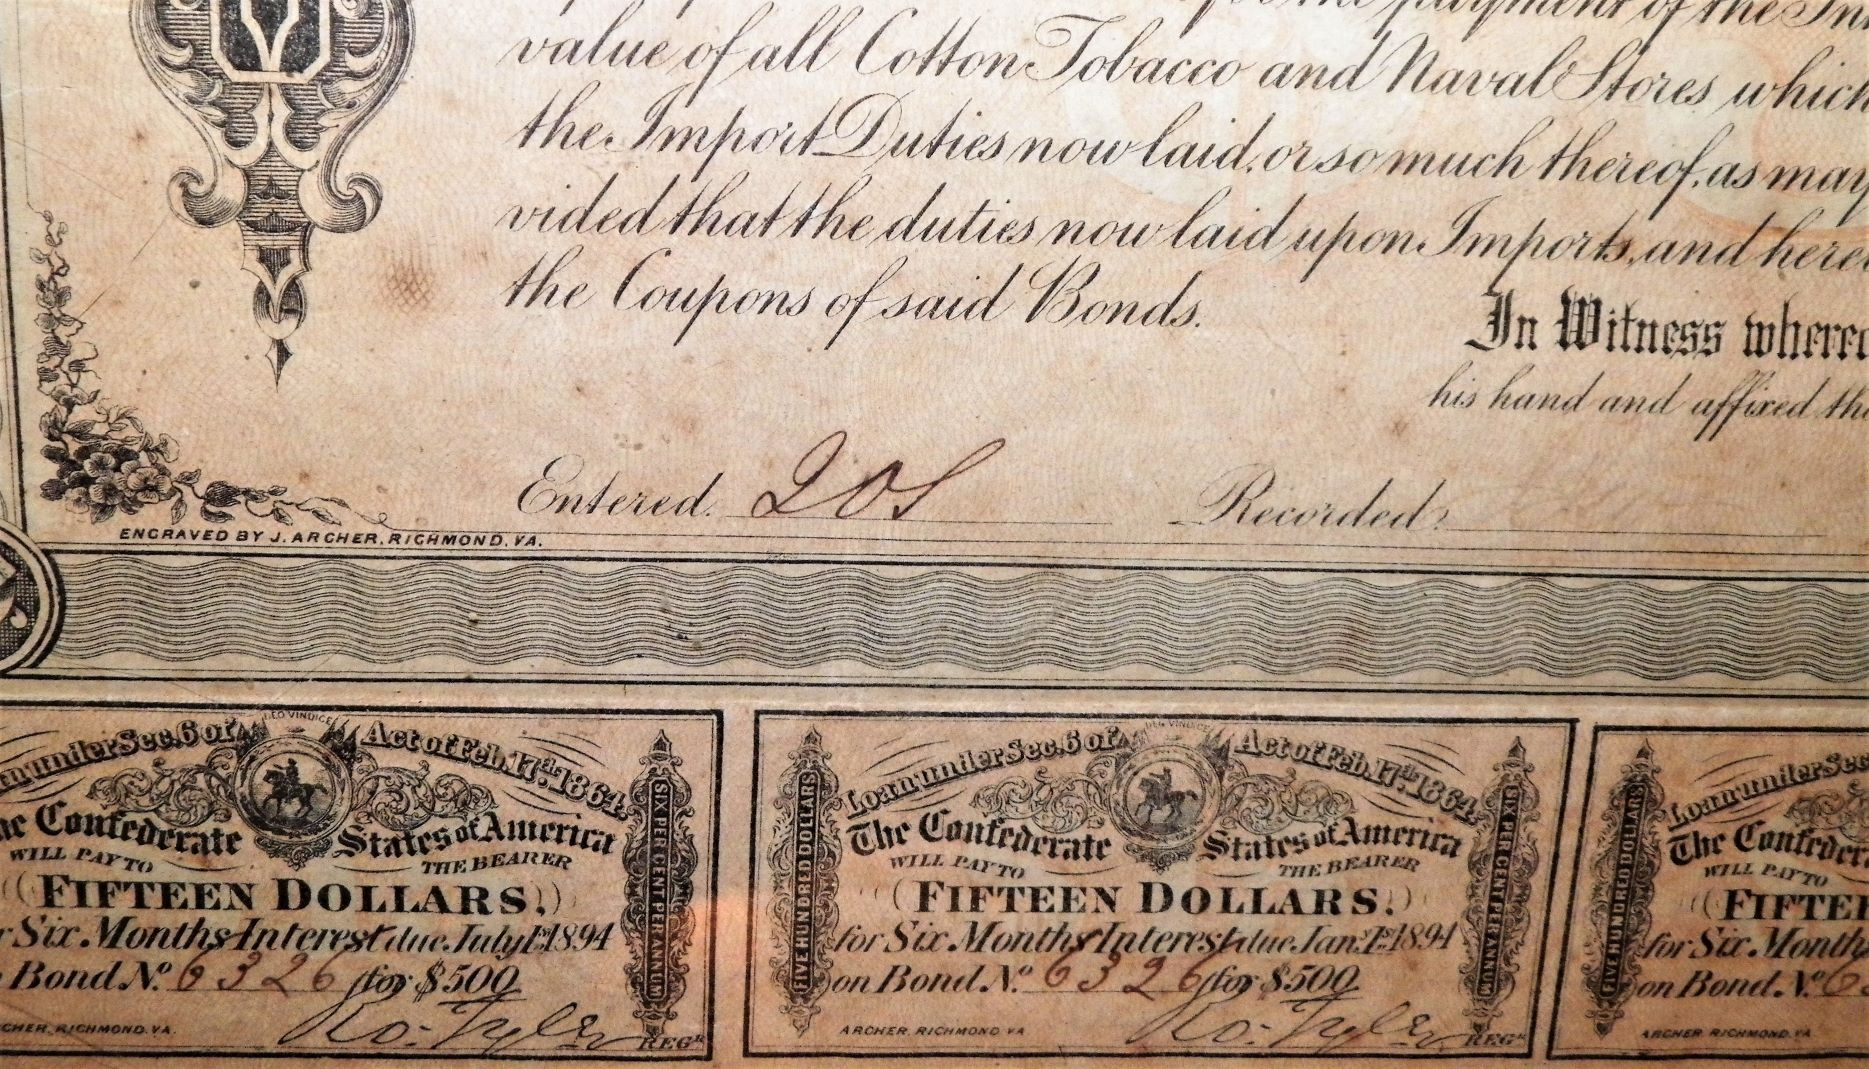 payment of the
value of all Cotton Tobacco and Naval Stores which
the Import Duties now laid, or so much thereof, as may
vided that the duties now laid upon Imports, and
the Coupons of said Bonds.
In Witness
his hand and affixed
Entered. Recorded.
ENGRAVED BY J. ARCHER, RICHMOND, VA.
DEO VINDICE
under Sec. 6 of Act of Feb. 17th 1864.
Confederate States of America
WILL PAY TO THE BEARER
FIFTEEN DOLLARS.
Six Months Interest due July 1st 1894
Bond No. 6326 for $500
RICHMOND. VA.
Ro. Tyler REGR
SIX PER CENT PER ANNUM
DEO VINDICE
Loan under Sec. 6 of Act of Feb. 17th 1864.
The Confederate States of America
WILL PAY TO THE BEARER
FIFTEEN DOLLARS.
for Six Months Interest due Jany. 1st 1894
on Bond No. 6326 for $500
ARCHER, RICHMOND VA
Ro. Tyler REGR
FIVE HUNDRED DOLLARS
SIX PER CENT PER ANNUM
Loan under Sec
The
WILL PAY TO
for Six
on Bond No. 6
ARCHER RICHMOND VA
FIVE HUNDRED DOLLARS